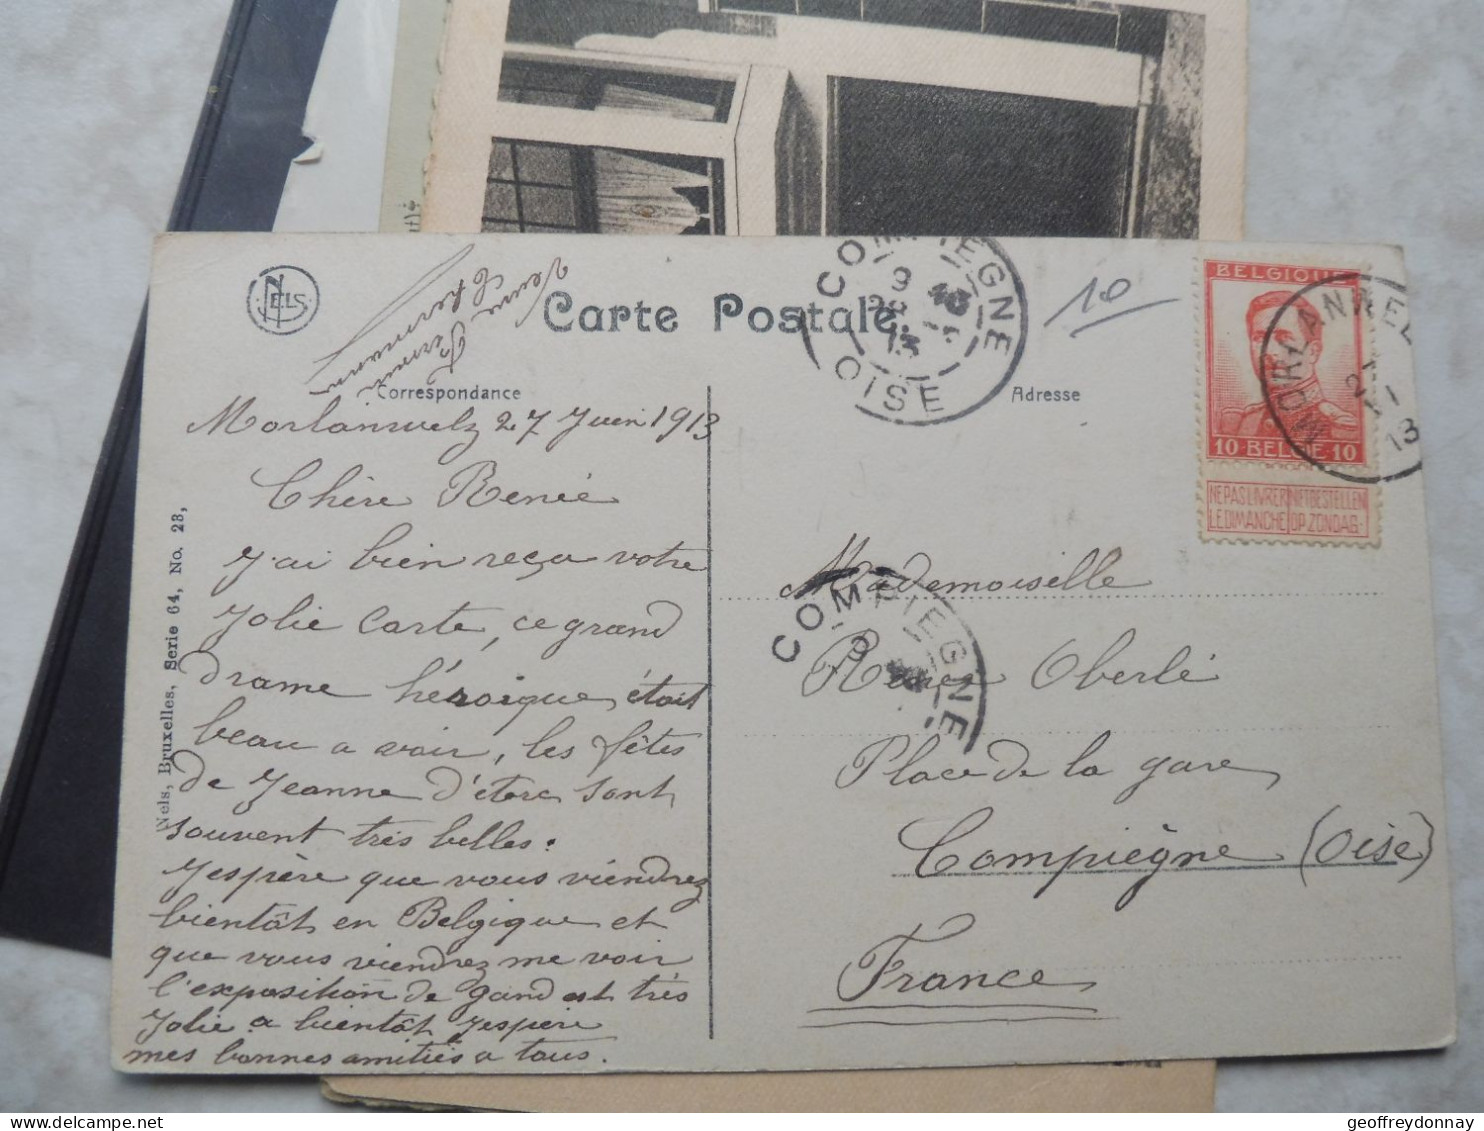 NELS
Carte Postale.
Correspondance
Adresse
10
COMPIEGNE
OISE
BELGIQUE
10 BELGIE 10
NE PAS LIVRER NIET BESTELLEN
LE DIMANCHE OP ZONDAG
MORLANWEL
27
VI
13
Morlanwelz 27 Juin 1913
Chère Renée
J'ai bien reçu votre
jolie carte, ce grand
drame héroique était
beau a avoir, les fêtes
de Jeanne d' sont
souvent très belles.
J'espère que vous viendrez
bientôt en Belgique et
que vous viendrez me voir
l'exposition de gand est très
jolie a bientôt j'espère
mes bonnes amitiés a tous.
Nels, Bruxelles, Serie 64, No. 23,
Mademoiselle
COMPIEGNE
Renée Oberlé
Place de la gare
Compiègne (Oise)
France
geoffreydonnay